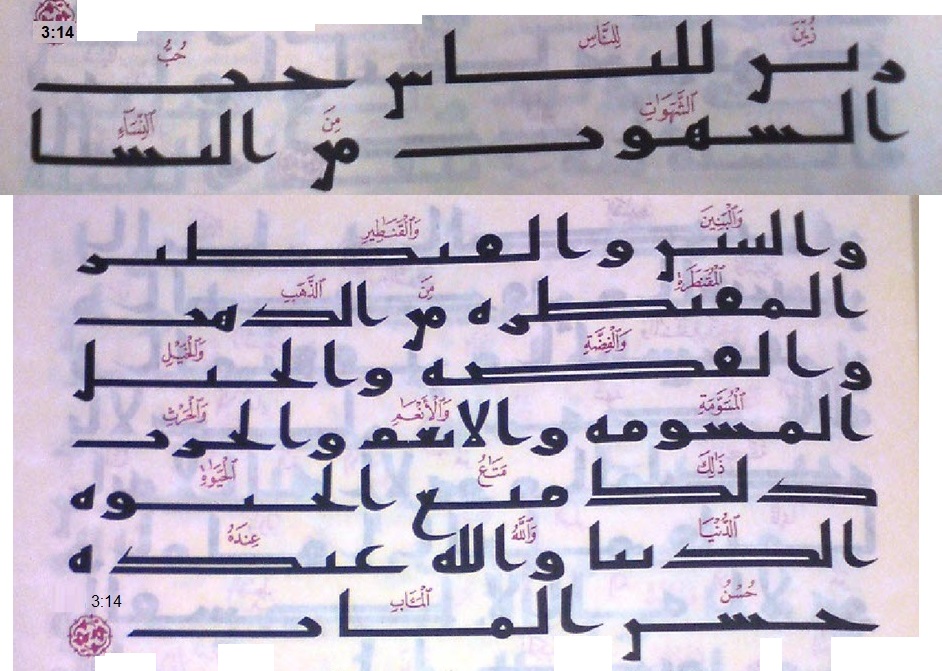 3:14
زُيِّنَ لِلنَّاسِ حُبُّ
زين للناس حب
ٱلشَّهَوَٰتِ مِنَ ٱلنِّسَآءِ
الشهوت من النسا
وَٱلْبَنِينَ وَٱلْقَنَٰطِيرِ
والبنين والقنطير
ٱلْمُقَنطَرَةِ مِنَ ٱلذَّهَبِ
المقنطره من الذهب
وَٱلْفِضَّةِ وَٱلْخَيْلِ
والفضه والخيل
ٱلْمُسَوَّمَةِ وَٱلْأَنْعَٰمِ وَٱلْحَرْثِ
المسومه والانعم والحرث
ذَٰلِكَ مَتَٰعُ ٱلْحَيَوٰةِ
ذلك متع الحيوه
ٱلدُّنْيَا وَٱللَّهُ عِندَهُۥ
الدنيا والله عنده
حُسْنُ ٱلْمَـَٔابِ
حسن الماب
3:14